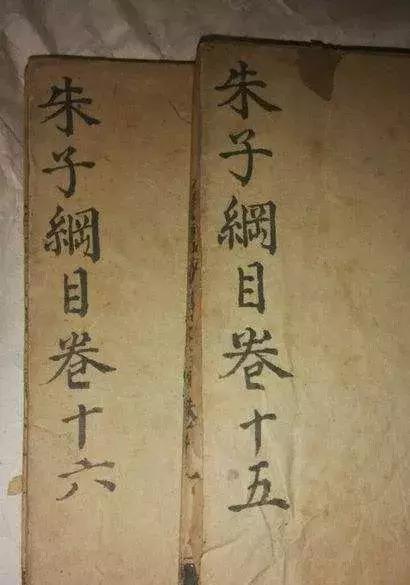 朱子綱目卷十五
朱子綱目卷十六